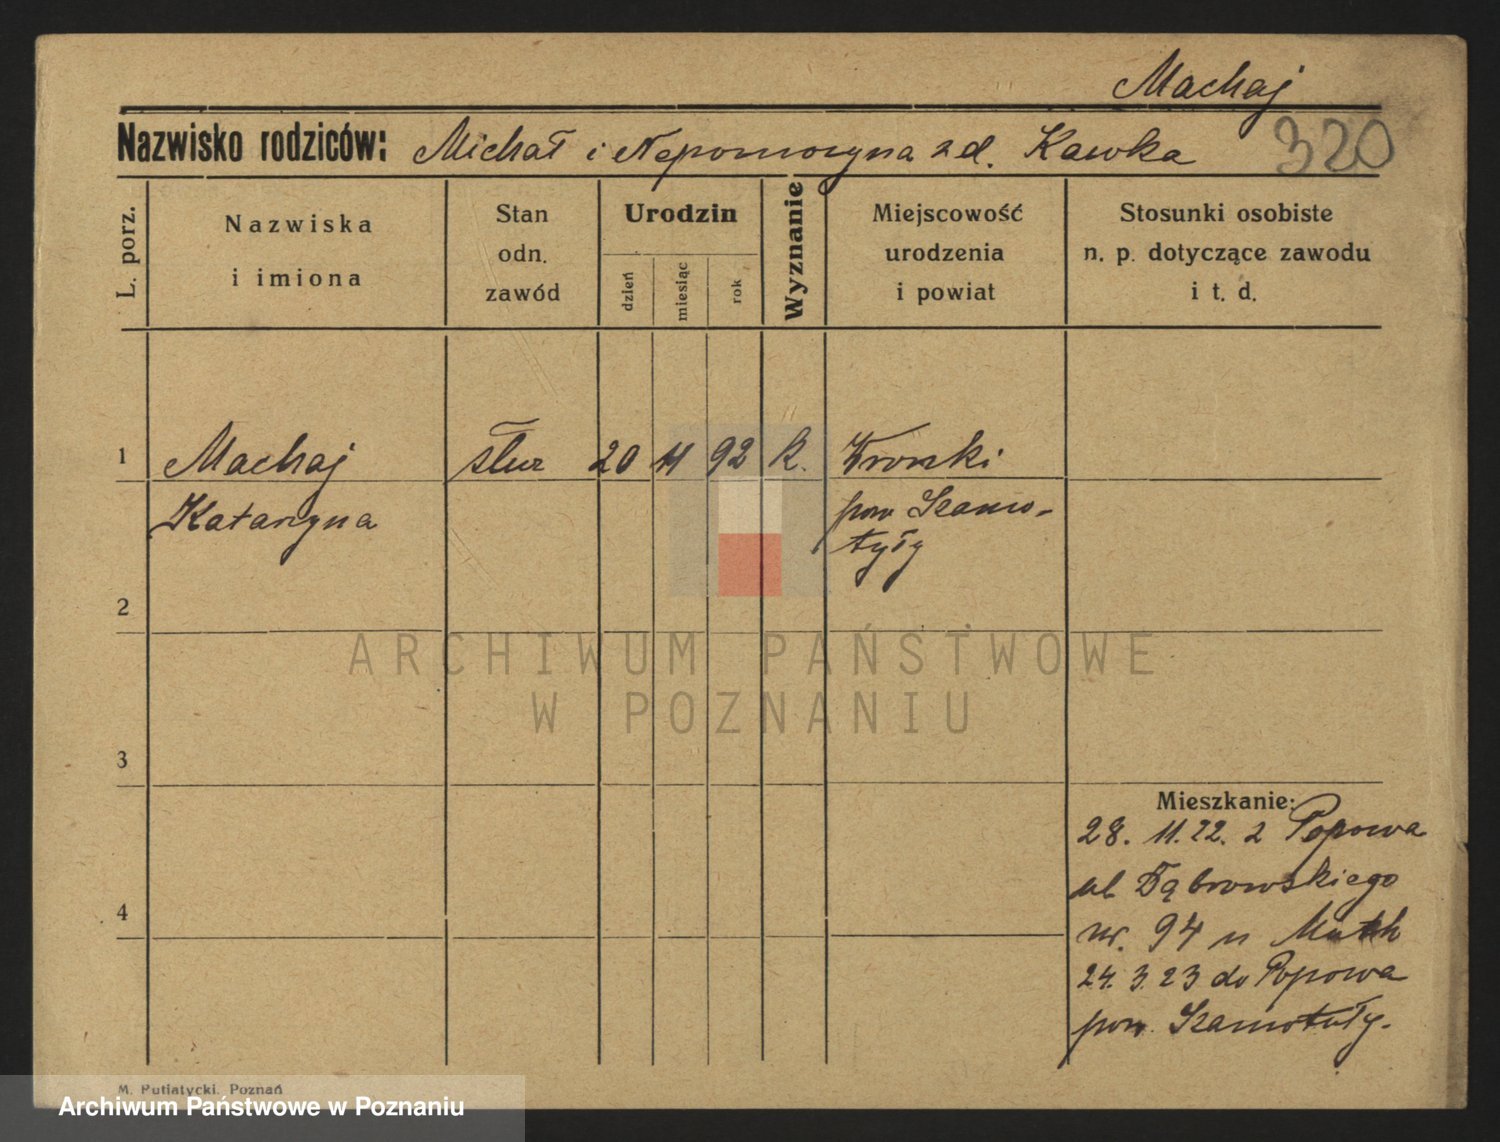 Machaj
Nazwisko rodziców: Michał i Nepomocyna zd. Kawka
320
L. porz.
Nazwiska
i imiona
Stan
odn.
zawód
Urodzin
dzień
miesiąc
rok
Wyznanie
Miejscowość
urodzenia
i powiat
Stosunki osobiste
n. p. dotyczące zawodu
i t. d.
1 Machaj służ 20 11 92 k. Wronki
Katarzyna pow Szamo-
tyły
2
ARCHIWUM PAŃSTWOWE
W POZNANIU
3
Mieszkanie:
28. 11. 22. z Popowa
ul Dąbrowskiego
nr. 94 u Muth
24. 3. 23 do Popowa
pow. Szamotuły.
4
M. Putiatycki, Poznań
Archiwum Państwowe w Poznaniu